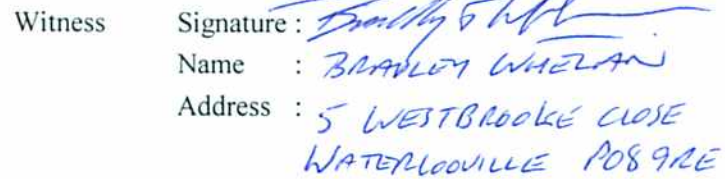 Witness Signature :
Name : BRADLEY WHELAN
Address : 5 WESTBROOKE CLOSE
WATERLOOVILLE PO8 9RE